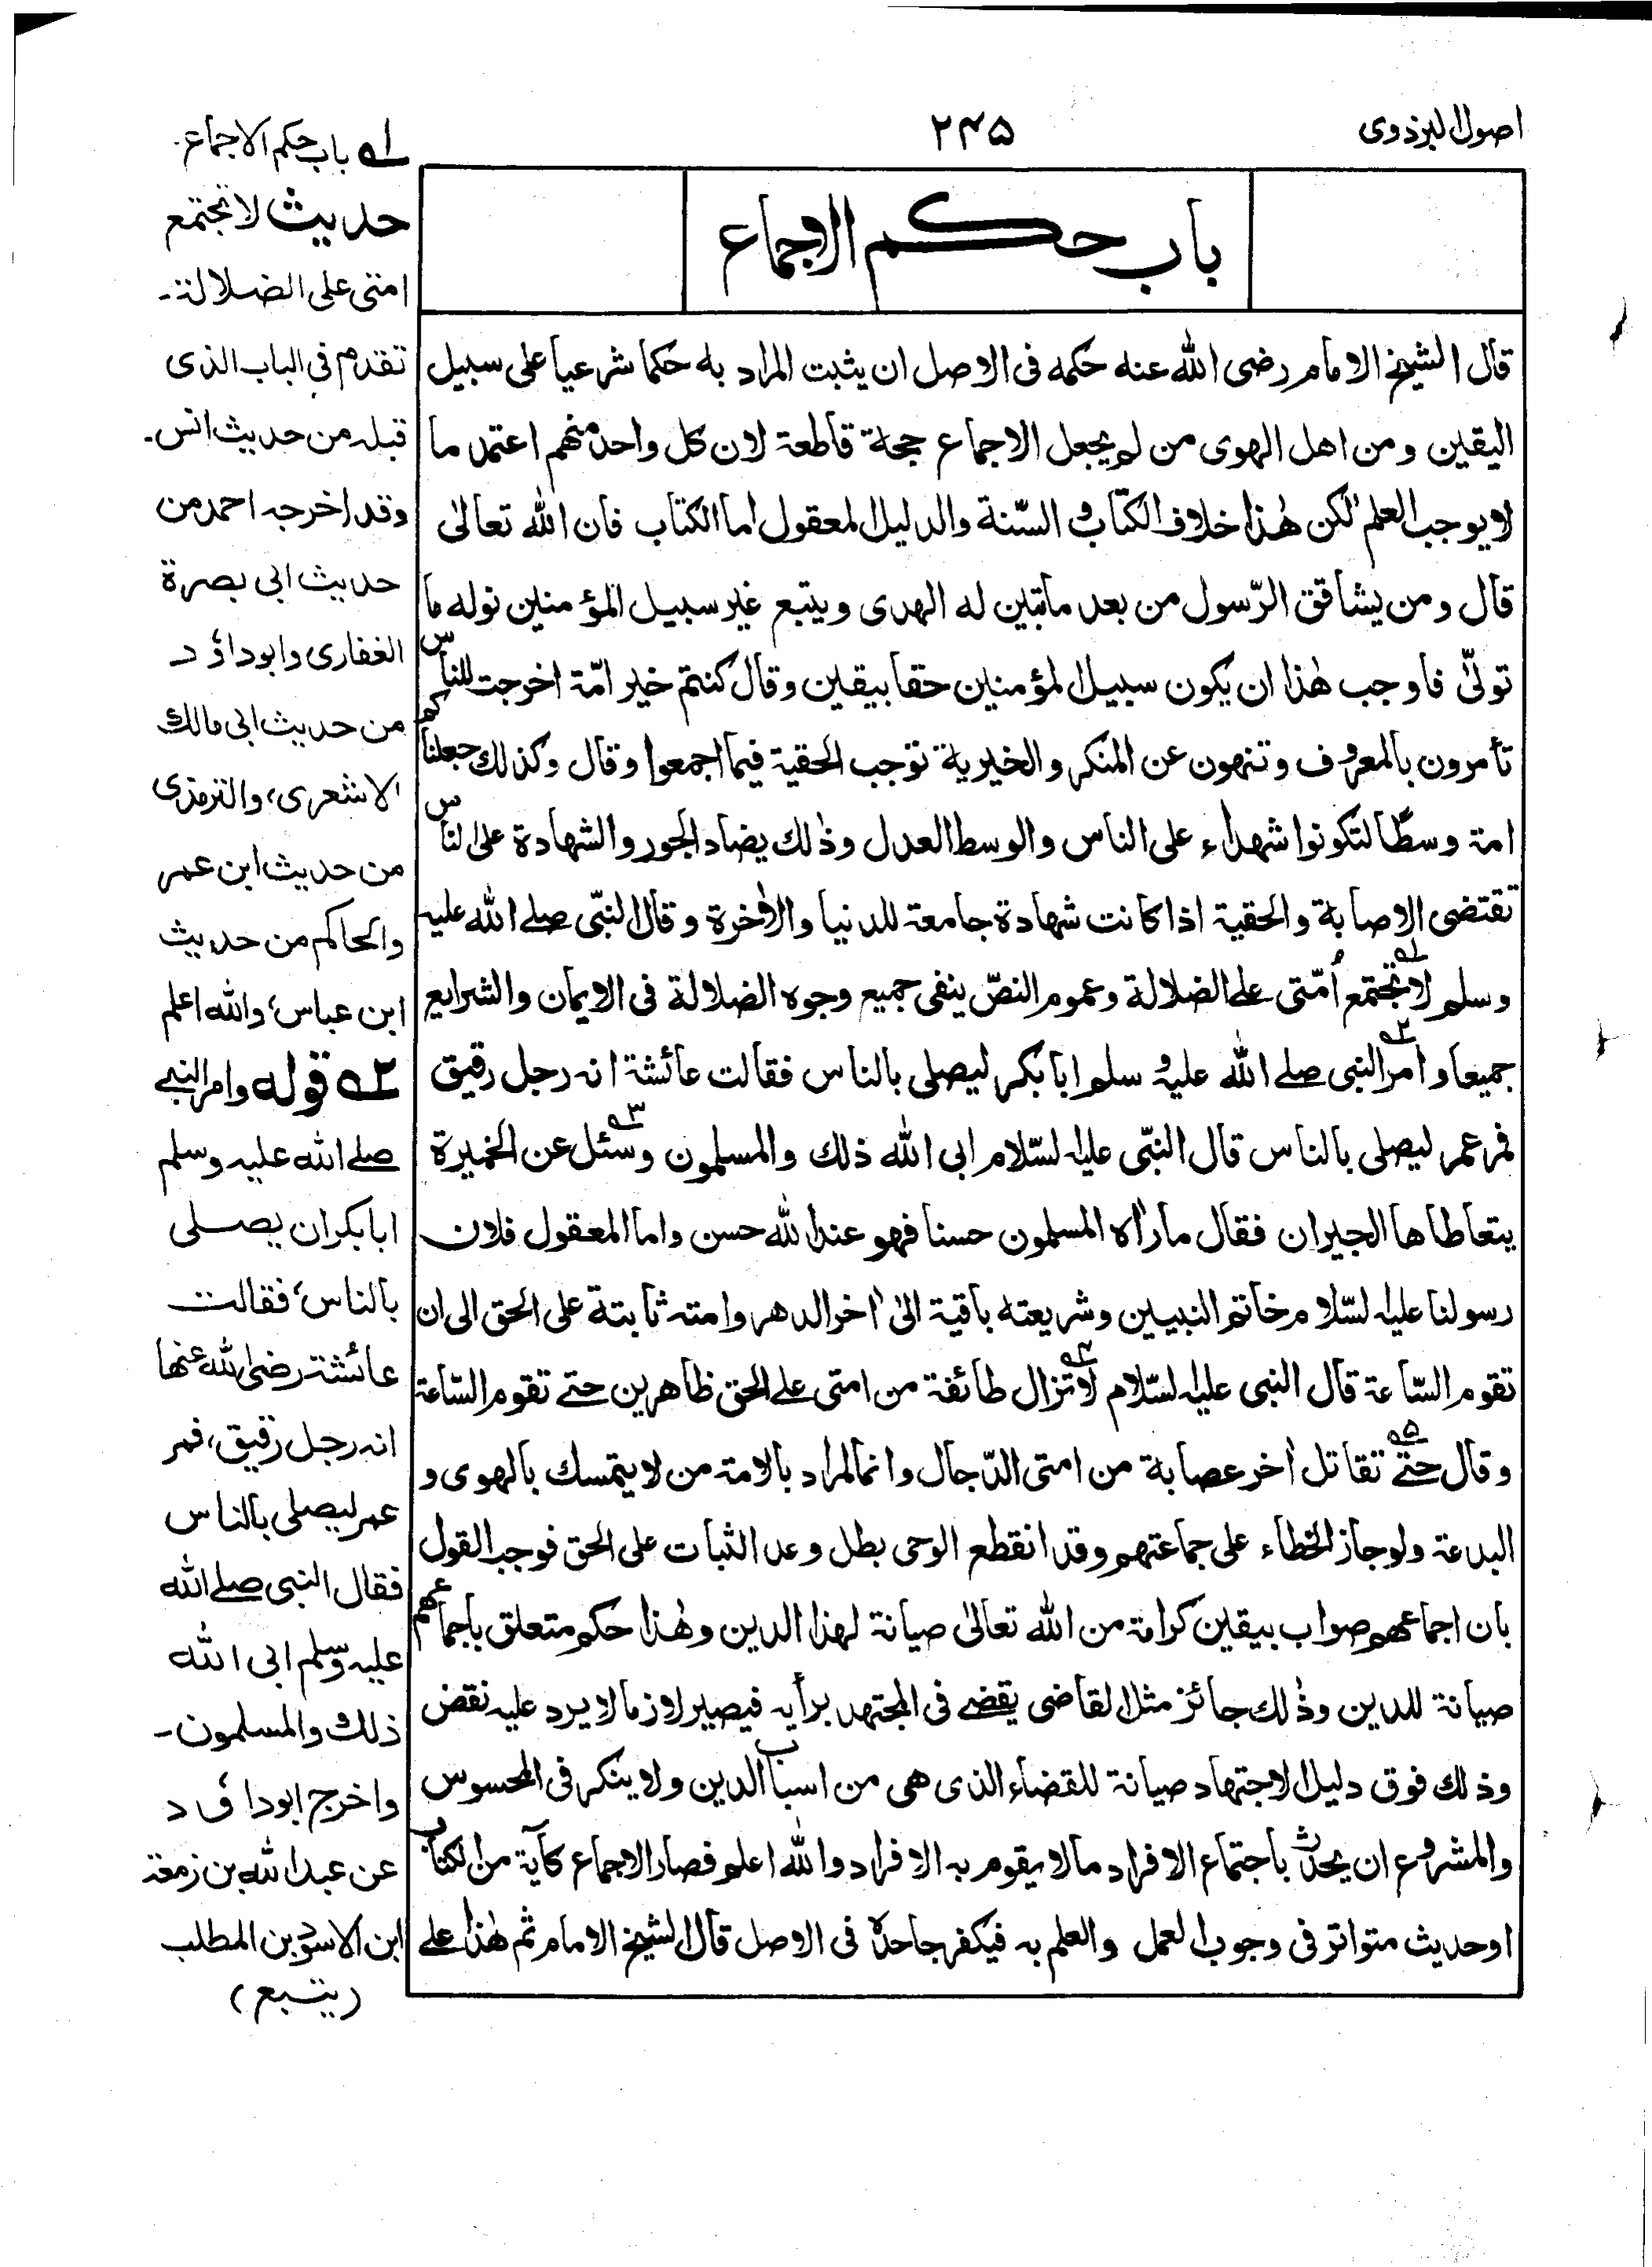 اصول البزدوی
۲۴۵
باب حكم الاجماع
قال الشيخ الامام رضى الله عنه حكمه فى الاصل ان يثبت المراد به حكما شرعيا على سبيل
اليقين ومن اهل الهوى من لم يجعل الاجماع حجة قاطعة لان كل واحد منهم اعتمد ما
لا يوجب العلم لكن هٰذا خلاف الكتاب و السّنة والدليل المعقول اما الكتاب فان الله تعالىٰ
قال ومن يشاقق الرّسول من بعد ما تبين له الهدى ويتبع غير سبيل المؤمنين نوله ما
تولّى فاوجب هٰذا ان يكون سبيل المؤمنين حقا بيقين وقال كنتم خير امّة اخرجت للناس
تأمرون بالمعروف وتنهون عن المنكر والخيرية توجب الحقية فيما اجمعوا وقال وكذلك جعلناكم
امة وسطًا لتكونوا شهداء على الناس والوسط العدل وذٰلك يضاد الجور والشهادة على الناس
تقتضى الاصابة والحقية اذا كانت شهادة جامعة للدنيا والاٰخرة وقال النبّى صلے الله عليه
وسلم لا تجتمع اُمّتى علے الضلالة وعموم النصّ ينفى جميع وجوه الضلالة فى الايمان والشرايع
جميعا وامر النبى صلے الله عليه و سلم ابا بكر ليصلى بالناس فقالت عائشة انه رجل رقيق
فمر عمر ليصلى بالناس قال النبّى عليه السّلام ابى الله ذلك والمسلمون وسئل عن الخميرة
يتعاطاها الجيران فقال ماراٰه المسلمون حسنا فهو عند الله حسن واما المعقول فلان
رسولنا عليه السّلام خاتم النبيين وشريعته باقية الىٰ اٰخر الدهر وامته ثابتة على الحق الى ان
تقوم السّاعة قال النبى عليه السّلام لا تزال طائفة من امتى علے الحق ظاهرين حتے تقوم السّاعة
وقال حتے تقاتل اٰخر عصابة من امتى الدّجال وانما المراد بالامة من لا يتمسك بالهوى و
البدعة ولو جاز الخطاء على جماعتهم وقد انقطع الوحى بطل وعد الثبات على الحق فوجب القول
بان اجماعهم صواب بيقين كرامة من الله تعالىٰ صيانة لهذا الدين وهٰذا حكم متعلق باجماعهم
صيانة للدين وذٰلك جائز مثل القاضى يقضے فى المجتهد برأيه فيصير لازما لا يرد عليه نقض
وذلك فوق دليل الاجتهاد صيانة للقضاء الذى هى من اسباب الدين ولا ينكر فى المحسوس
والمشروع ان يحدث باجتماع الافراد مالا يقوم به الافراد والله اعلم فصار الاجماع كآية من الكتاب
او حديث متواتر فى وجوب العمل والعلم به فيكفر جاحدہ فى الاصل قال الشيخ الامام ثم هٰذا علے
لـه باب حكم الاجماع.
حديث لا تجتمع
امتى على الضلالة-
تقدم فى الباب الذى
قبله من حديث انس-
وقد اخرجه احمد من
حديث ابى بصرة
الغفارى وابوداؤد
من حديث ابى مالك
الاشعرى، والترمذى
من حديث ابن عمر
والحاكم من حديث
ابن عباس، والله اعلم
۲ـه قوله وامر النبے
صلے الله عليه وسلم
ابابكر ان يصلى
بالناس، فقالت
عائشة رضى الله عنها
انه رجل رقيق، فمر
عمر ليصلى بالناس
فقال النبى صلے الله
عليه وسلم ابى الله
ذلك والمسلمون-
واخرج ابوداؤد
عن عبد الله بن زمعة
ابن الاسود بن المطلب
(يتبع)